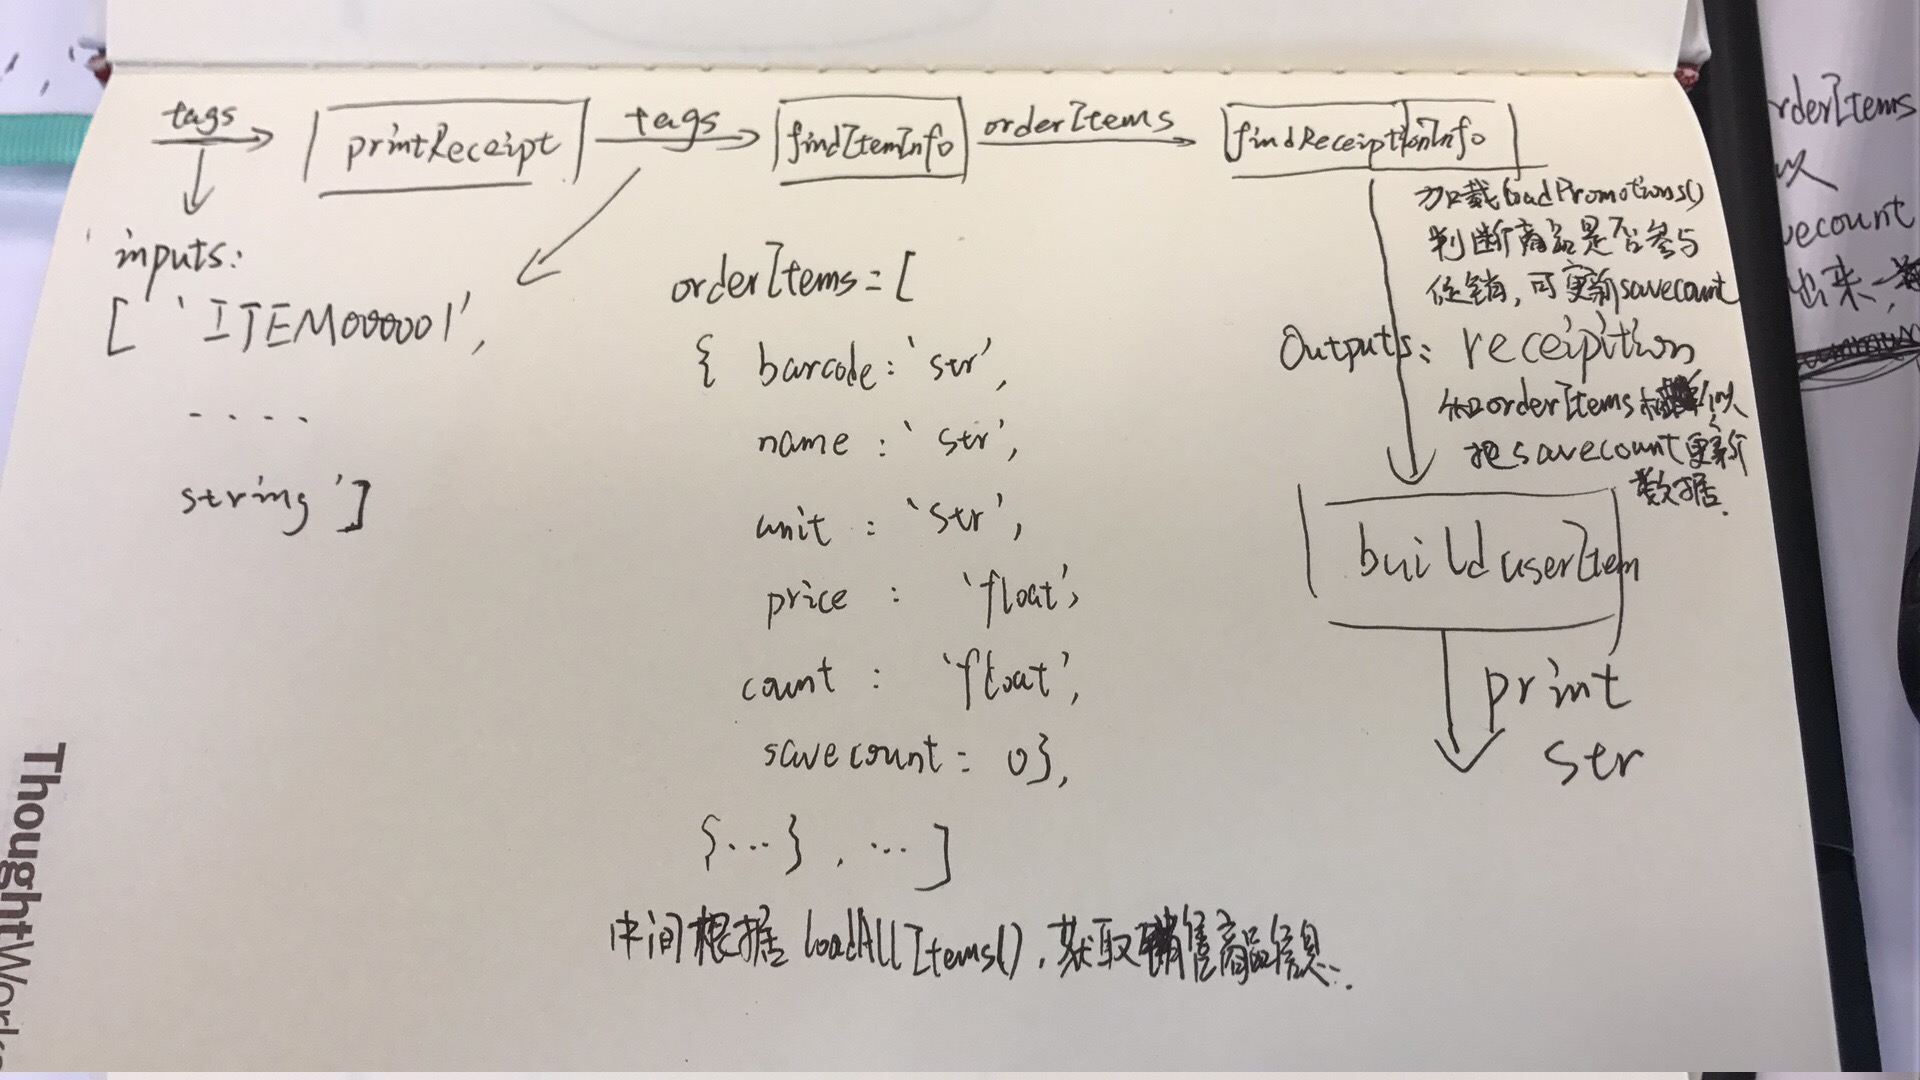 tags
printReceipt
tags
findItemInfo
orderItems
findReceiptionInfo
inputs:
[ 'ITEM000001',
....
string']
orderItems = [
{ barcode: 'str',
name : 'str',
unit : 'str',
price : 'float',
count : 'float',
savecount: 0},
{...}, ...]
中间根据 loadAllItems(), 获取销售商品信息.
加载loadPromotions()
判断商品是否参与
促销, 可更新savecount
Outputs: receipition
和orderItems相似
把savecount更新
数据.
builduserItem
print
str
ThoughtWorks
rderItems
以
vecount
出来